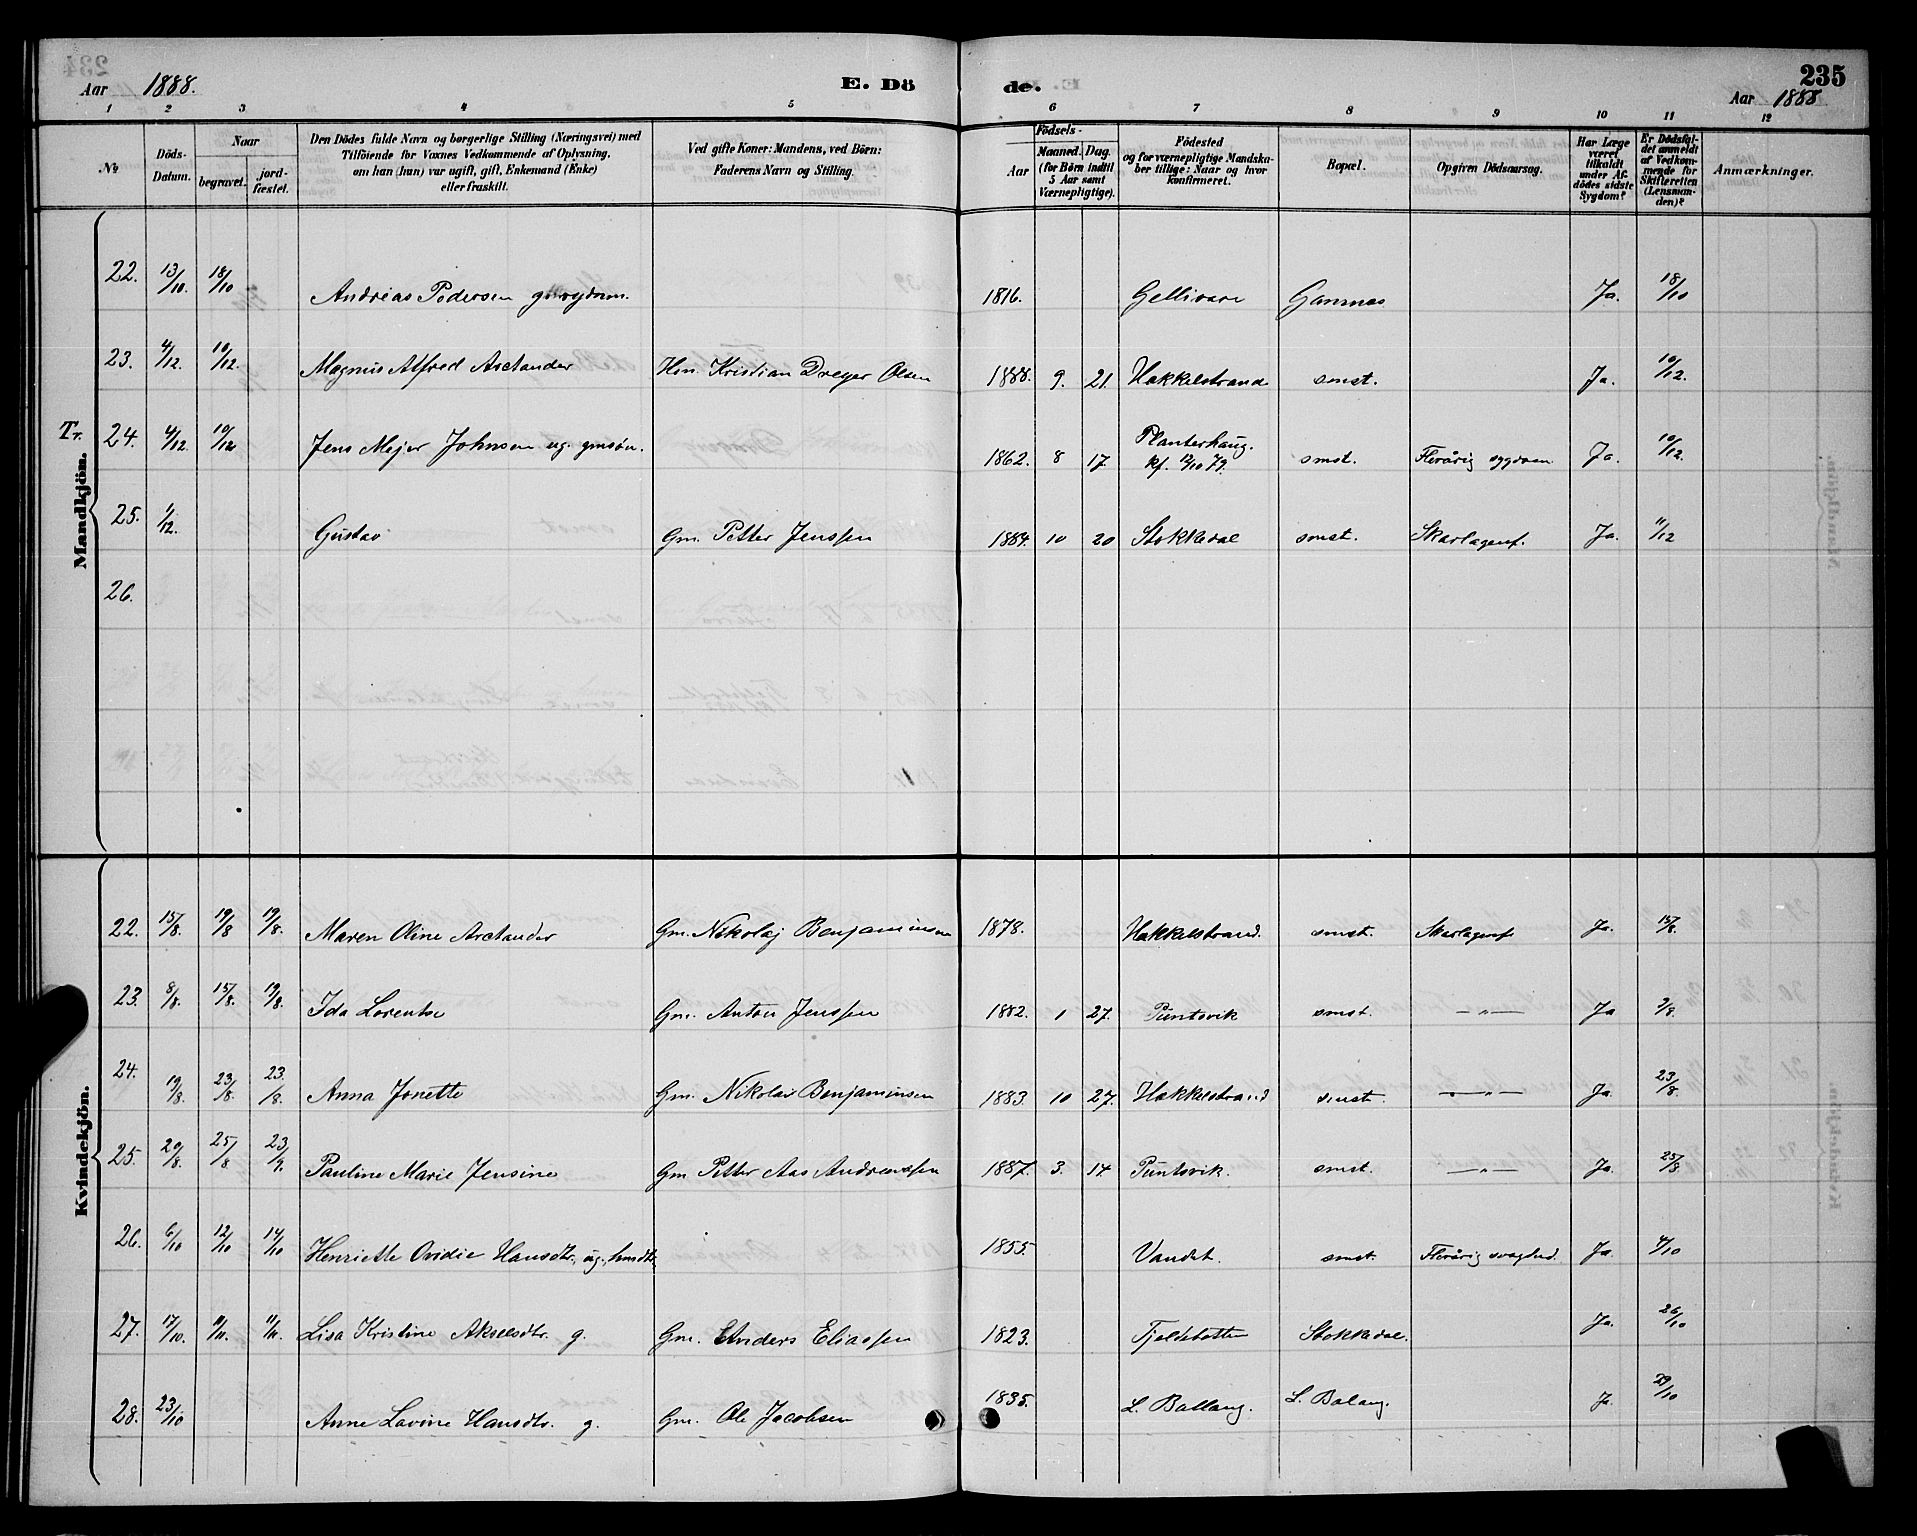 Aar 1888.
E. Dö
de.
235
Aar 1888
1 2 3 4 5 6 7 8 9 10 11 12
No
Döds-Datum.
Naar
begravet.
jord-fæstet.
Den Dödes fulde Navn og borgerlige Stilling (Næringsvei) med
Tilföiende for Voxnes Vedkommende af Oplysning,
om han (hun) var ugift, gift, Enkemand (Enke)
eller fraskilt.
Ved gifte Koner: Mandens, ved Börn:
Faderens Navn og Stilling.
Födsels-
Aar
Maaned. Dag.
(for Börn indtil
5 Aar samt
Værnepligtige).
Födested
og for værnepligtige Mandska-
ber tillige: Naar og hvor
konfirmeret.
Bopæl.
Opgiven Dödsaarsag.
Har Læge
været
tilkaldt
under Af-
dödes sidste
Sygdom?
Er Dödsfal-
det anmeldt
af Vedkom-
mende for
Skifteretten
(Lensman-
den)?
Anmærkninger.
Mandkjön.
22. 13/10. 18/10 Andreas Pedersen 1816. Gellivare Ja. 18/10
23. 4/12. 10/12. Magnus Alfred Arctander Hm. Kristian Dreyer Olsen 1888. 9. 21. Hakkelstrand smst. Ja. 10/12.
Tr. 24. 4/12. 10/12 Jens Mejer Johnsen ug. gmsön. 1862. 8 17. Planterhaug. kf. 12/10 79. smst. Flerårig sygdom Ja. 10/12.
25. Gustav Gm. Petter Jenssen 1884. 10 20 Stokkedal smst. Skarlagensf. Ja. 11/12
26.
Kvindekjön.
22. 15/8. 19/8 19/8. Maren Oline Arctander Gm. Nikolaj Benjaminsen 1878. Hakkelstrand. smst. Skarlagensf. Ja. 15/8.
23. 8/8. 15/8. 19/8. Ida Lorentse Gm. Anton Jenssen 1882. 1 27. Puntsvik smst. — " — Ja
24. 19/8. 23/8. 23/8. Anna Jonette Gm. Nikolai Benjaminsen 1883. 10 27. Hakkelstrand smst. — " — Ja. 23/8.
25. 20/8. 25/8 23/9. Pauline Marie Jensine Gm. Petter Aas Andreassen 1887. 3. 14. Puntsvik. smst. — " — Ja. 25/8
26. 6/10 12/10 14/10 Henriette Ovidie Hansdtr., ug., 1855. Vandet. smst. Flerårig svaghed. Ja.
27. 17/10. 11/11. 11/11. Lisa Kristine Akselsdtr. g. Gm. Anders Eliassen 1823. Tjeldebotten Stokkedal. Ja. 26/10
28. 23/10 Anne Lavine Hansdtr. g. Gm. Ole Jacobsen 1835. L. Ballang. L. Balang. Ja. 29/10